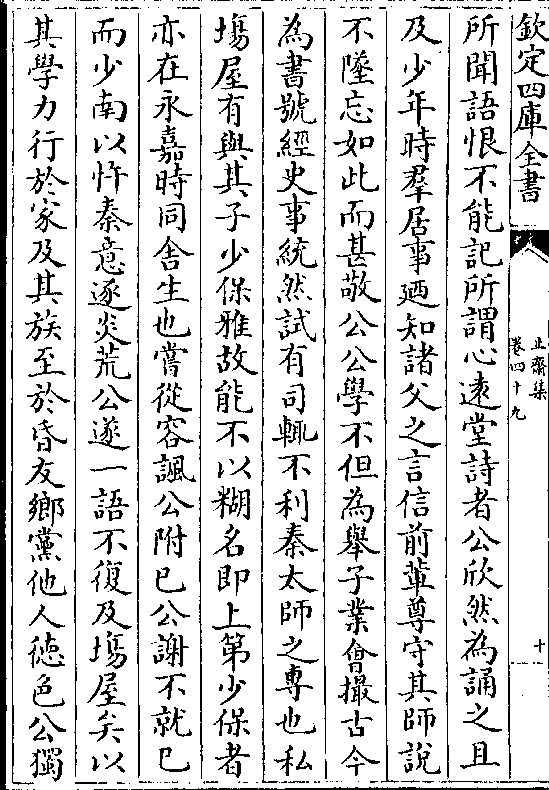 欽定四庫全書
止齋集
卷四十九
十
所聞語恨不能記所謂心遠堂詩者公欣然為誦之且
及少年時羣居事廼知諸父之言信前輩尊守其師說
不墜忘如此而甚敬公公學不但為舉子業會撮古今
為書號經史事統然試有司輒不利秦太師之專也私
塲屋有與其子少保雅故能不以糊名即上第少保者
亦在永嘉時同舍生也嘗從容諷公附已公謝不就已
而少南以忤秦意逐炎荒公遂一語不復及塲屋矣以
其學力行於家及其族至於昏友鄉黨他人徳色公獨